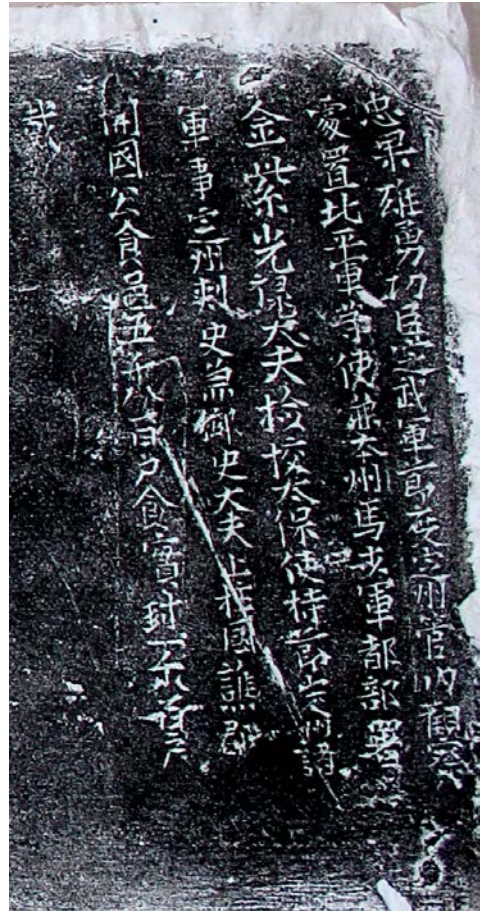 忠果雄勇功臣定武軍節度定州管內觀察
處置北平軍等使兼本州馬步軍都部署
金紫光祿大夫檢校太保使持節定州諸
軍事定州刺史兼御史大夫上柱國譙郡
開國公食邑五千八百户食實封
戴